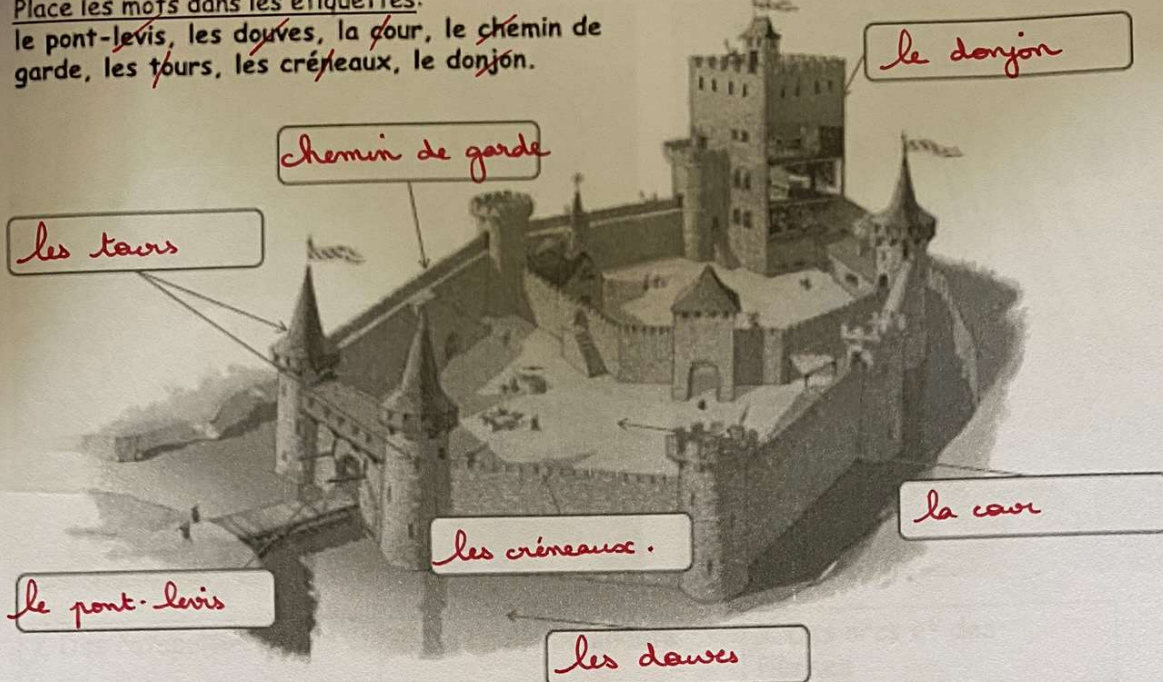 Place les mots dans les étiquettes.
le pont-levis, les douves, la cour, le chemin de
garde, les tours, les créneaux, le donjon.
le donjon
chemin de garde
les tours
la cour
les créneaux.
le pont-levis
les douves